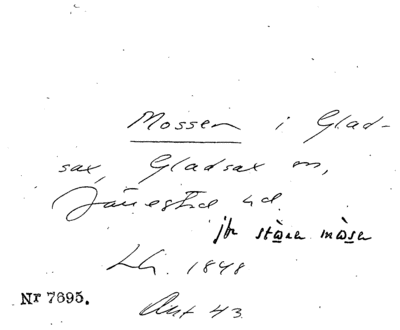 Mossen i Glad-
sax, Gladsax sn,
Järrestad hd.
jfr stòra mòsen
Lh. 1848
Nr 7695.
Akt 43